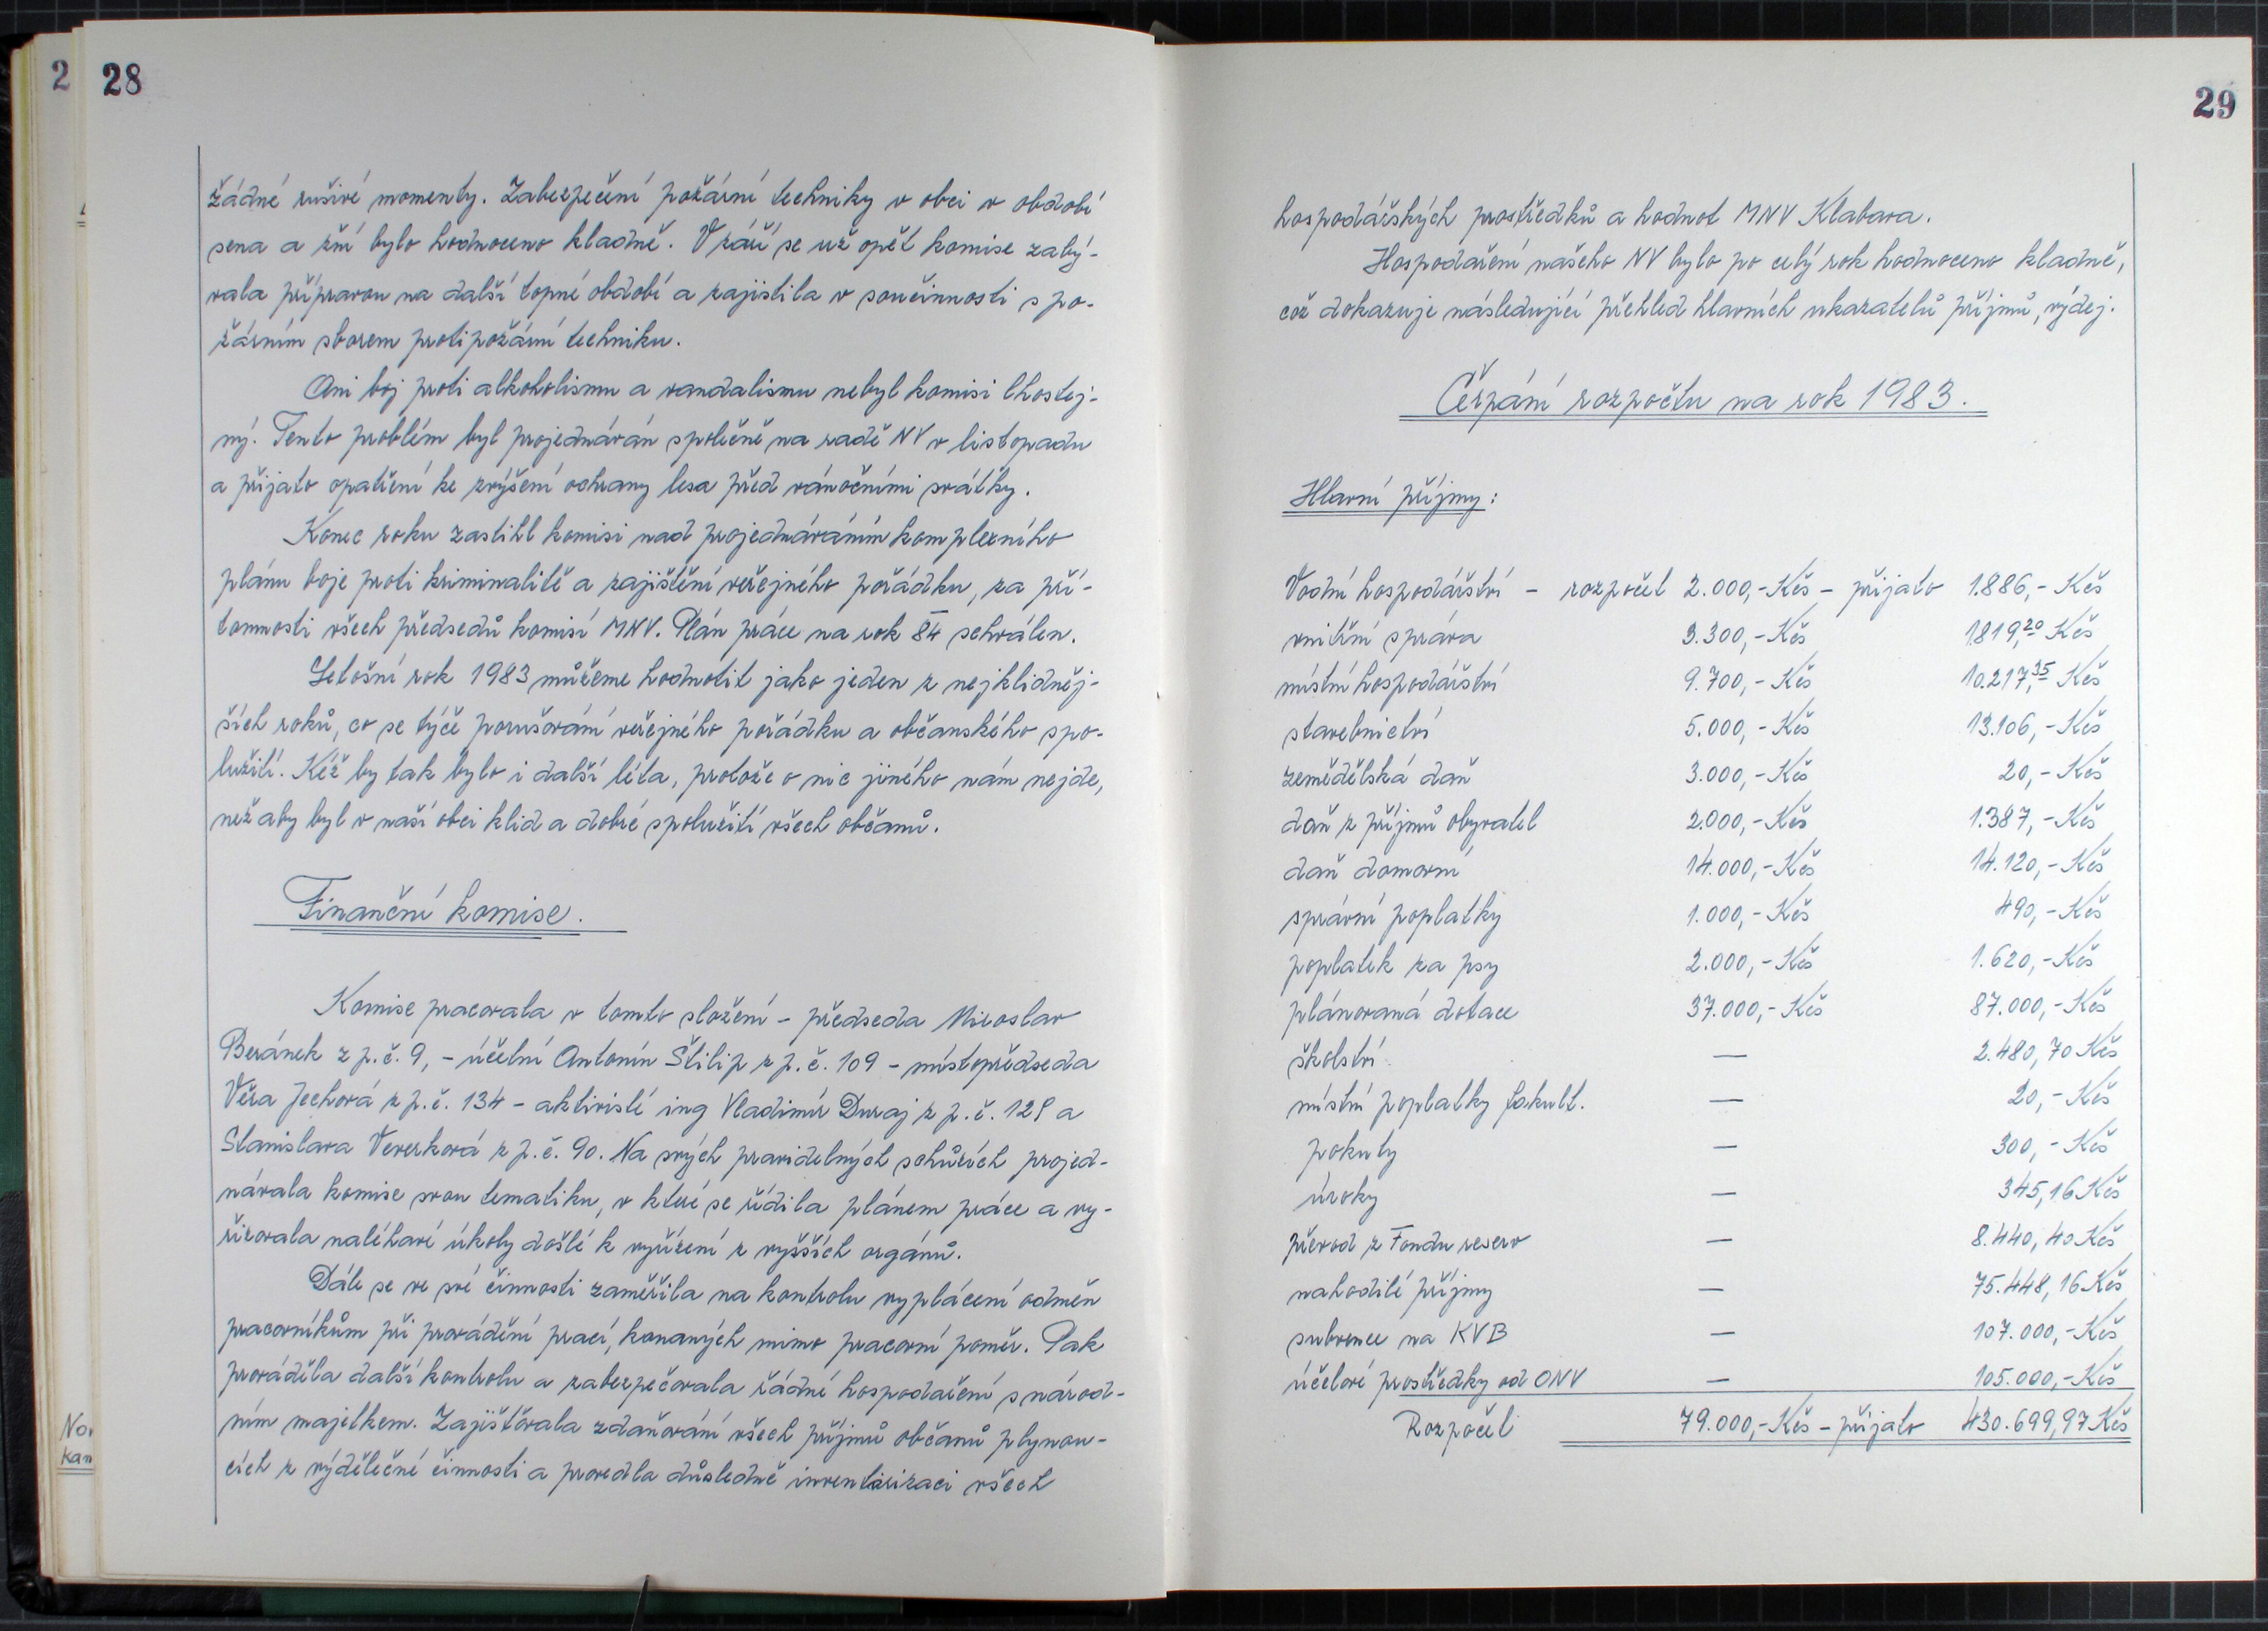 2 28
žádné rušivé momenty. Zabezpečení požární techniky v obci v období
sena a žní bylo hodnoceno kladně. V září se už opět komise zabý-
vala přípravou na další topné období a zajistila v součinnosti s po-
žárním sborem protipožární techniku.
Ani boj proti alkoholismu a vandalismu nebyl komisi lhostej-
ný. Tento problém byl projednáván společně na radě NV v listopadu
a přijato opatření ke zvýšení ochrany lesa před vánočními svátky.
Konec roku zastihl komisi nad projednáváním komplexního
plánu boje proti kriminalitě a zajištění veřejného pořádku, za pří-
tomnosti všech předsedů komisí MNV. Plán práce na rok 84 schválen.
Letošní rok 1983 můžeme hodnotit jako jeden z nejklidněj-
ších roků, co se týče porušování veřejného pořádku a občanského spo-
lužití. Kéž by tak bylo i další léta, protože o nic jiného nám nejde,
než aby byl v naší obci klid a dobré spolužití všech občanů.
Finanční komise.
Komise pracovala v tomto složení - předseda Miroslav
Beránek z p.č. 9, - účetní Antonín Štilip z p.č. 109 - místopředseda
Věra Jechová z p.č. 134 - aktivisté ing Vladimír Duraj z p.č. 129 a
Stanislava Veverková z p.č. 90. Na svých pravidelných schůzích projed-
návala komise svou tematiku, v které se řídila plánem práce a vy-
řizovala naléhavé úkoly došlé k vyřízení z vyšších orgánů.
Dále se ve své činnosti zaměřila na kontrolu vyplácení odměn
pracovníkům při provádění prací, konaných mimo pracovní poměr. Pak
prováděla další kontrolu a zabezpečovala řádné hospodaření s národ-
ním majetkem. Zajišťovala zdaňování všech příjmů občanů plynou-
cích z výdělečné činnosti a provedla důsledně inventarizaci všech
Nov
kan
29
hospodářských prostředků a hodnot MNV Klabava.
Hospodaření našeho NV bylo po celý rok hodnoceno kladně,
což dokazuje následující přehled hlavních ukazatelů příjmů, výdej.
Čerpání rozpočtu na rok 1983.
Hlavní příjmy:
Vodní hospodářství - rozpočet 2.000,- Kčs - přijato 1.886,- Kčs
vnitřní správa 3.300,- Kčs 1819,20 Kčs
místní hospodářství 9.700,- Kčs 10.217,35 Kčs
stavebnictví 5.000,- Kčs 13.106,- Kčs
zemědělská daň 3.000,- Kčs 20,- Kčs
daň z příjmů obyvatel 2.000,- Kčs 1.387,- Kčs
daň domovní 14.000,- Kčs 14.120,- Kčs
správní poplatky 1.000,- Kčs 490,- Kčs
poplatek za psy 2.000,- Kčs 1.620,- Kčs
plánovaná dotace 37.000,- Kčs 87.000,- Kčs
školství — 2.480,70 Kčs
místní poplatky fakult. — 20,- Kčs
pokuty — 300,- Kčs
úroky — 345,16 Kčs
převod z Fondu reserv — 8.440,40 Kčs
nahodilé příjmy — 75.448,16 Kčs
subvence na KVB — 107.000,- Kčs
účelové prostředky od ONV — 105.000,- Kčs
Rozpočet 79.000,- Kčs - přijato 430.699,97 Kčs